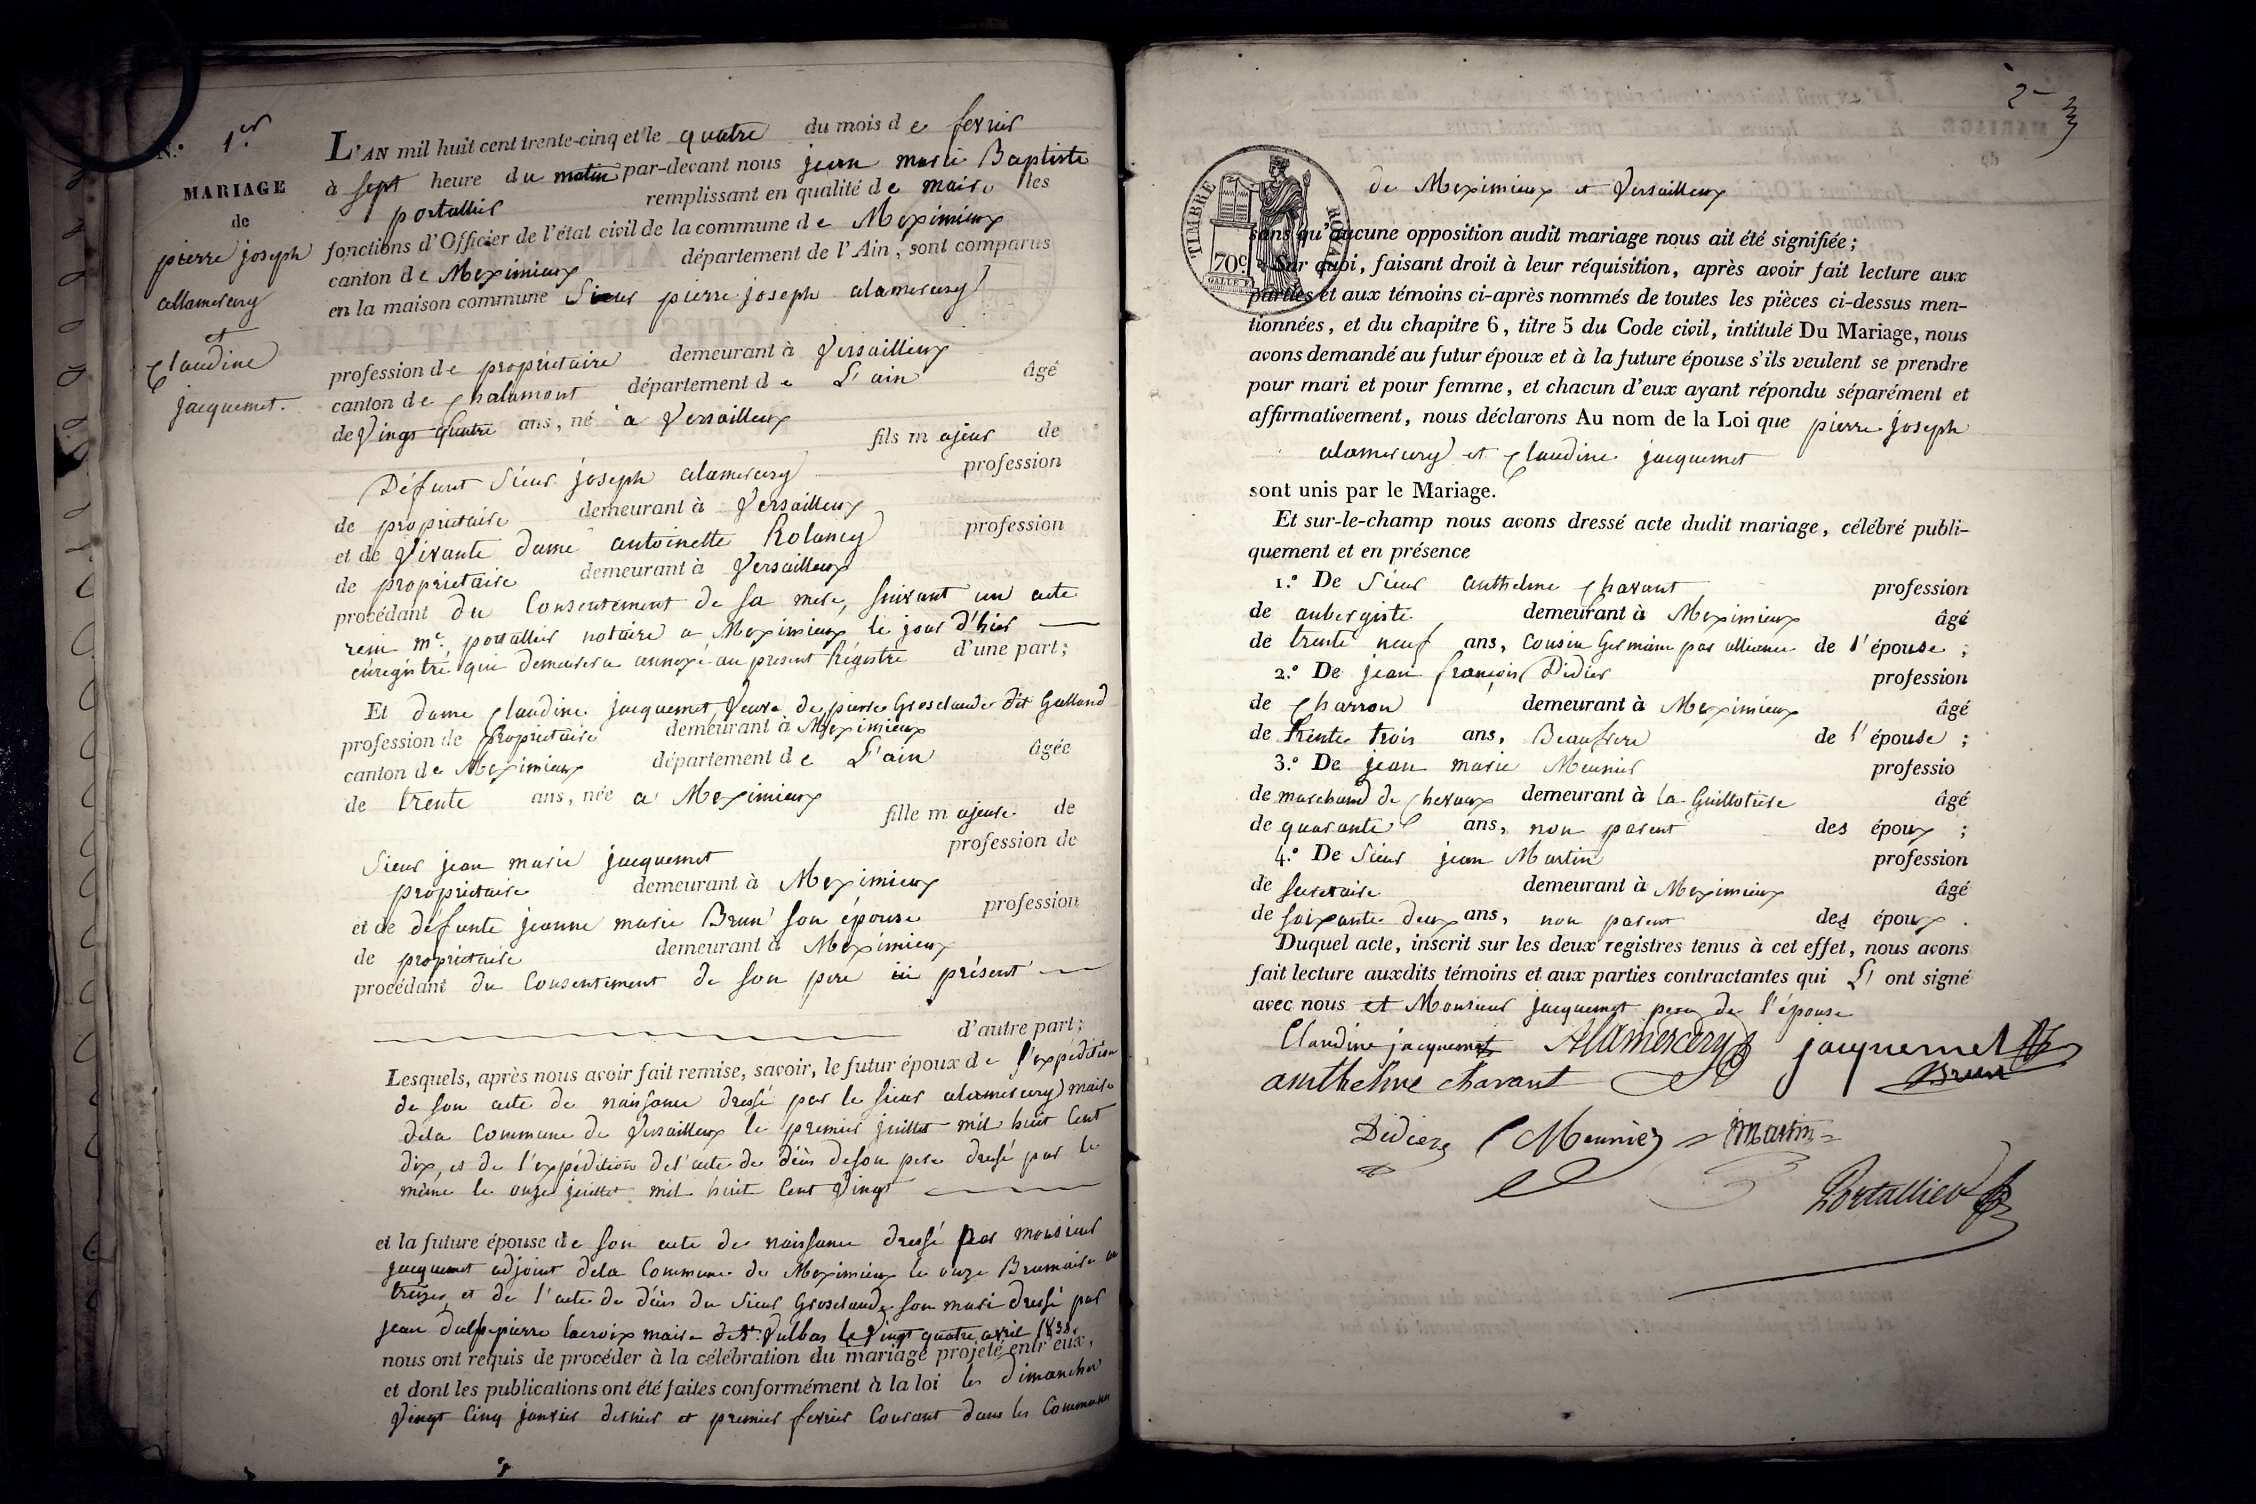 N.° 1.er
MARIAGE
de
pierre joseph
alamercery
et
Claudine
jacquemet.
L'AN mil huit cent trente-cinq et le quatre du mois de fevrier
à sept heure du matin par-devant nous jean marie Baptiste
portallier remplissant en qualité de maire les
fonctions d'Officier de l'état civil de la commune de Meximieux
canton de Meximieux département de l'Ain, sont comparus
en la maison commune Sieur pierre joseph alamercery
profession de propriétaire demeurant à Versailleux
canton de Chalamont département de L'ain âgé
de Vingt quatre ans, né à Versailleux
fils majeur de
Défunt Sieur joseph alamercery profession
de propriétaire demeurant à Versailleux
et de Vivante dame antoinette Rolancy profession
de propriétaire demeurant à Versailleux
procédant du Consentement de sa mere, suivant un acte
reçu m.e portallier notaire a Meximieux le jour d'hier
enregistré qui demeurera annexé au present Régistre d'une part;
Et dame Claudine jacquemet Veuve de pierre Grosclaude dit Galland
profession de propriétaire demeurant à Meximieux
canton de Meximieux département de L'ain âgée
de trente ans, née a Meximieux
fille majeure de
Sieur jean marie jacquemet profession de
propriétaire demeurant à Meximieux
et de défunte jeanne marie Brun son épouse profession
de propriétaire demeurant à Meximieux
procédant du Consentement de son pere ici présent
d'autre part;
Lesquels, après nous avoir fait remise, savoir, le futur époux de l'expédition
de son acte de naissance dressé par le sieur alamercery maire
dela Commune de Versailleux le premier juillet mil huit Cent
dix, et de l'expédition del'acte de décès deson pere dressé par le
même le onze juillet mil huit Cent Vingt
et la future épouse de son acte de naissance dressé par monsieur
jacquemet adjoint dela Commune de Meximieux le onze Brumaire an
treize, et de l'acte de décès du Sieur Grosclaude son mari dressé par
jean pierre lacroix maire de St. Vulbas le Vingt quatre avril
nous ont requis de procéder à la célébration du mariage projeté entr'eux,
et dont les publications ont été faites conformément à la loi les dimanches
Vingt Cinq janvier dernier et premier fevrier Courant dans les Communes
2
3
TIMBRE ROYAL
70c.
de Meximieux et Versailleux
sans qu'aucune opposition audit mariage nous ait été signifiée;
Sur quoi, faisant droit à leur réquisition, après avoir fait lecture aux
parties et aux témoins ci-après nommés de toutes les pièces ci-dessus men-
tionnées, et du chapitre 6, titre 5 du Code civil, intitulé Du Mariage, nous
avons demandé au futur époux et à la future épouse s'ils veulent se prendre
pour mari et pour femme, et chacun d'eux ayant répondu séparément et
affirmativement, nous déclarons Au nom de la Loi que pierre joseph
alamercery et Claudine jacquemet
sont unis par le Mariage.
Et sur-le-champ nous avons dressé acte dudit mariage, célébré publi-
quement et en présence
1.° De Sieur anthelme Chavant profession
de aubergiste demeurant à Meximieux âgé
de trente neuf ans, Cousin Germain par alliance de l'épouse;
2.° De jean françois Didier profession
de Charron demeurant à Meximieux âgé
de trente trois ans, Beaufrere de l'épouse;
3.° De jean marie Meunier professio
de marchand de Chevaux demeurant à La Guillotiere âgé
de quarante ans, non parent des époux;
4.° De Sieur jean Martin profession
de secretaire demeurant à Meximieux âgé
de soixante deux ans, non parent des époux.
Duquel acte, inscrit sur les deux registres tenus à cet effet, nous avons
fait lecture auxdits témoins et aux parties contractantes qui L' ont signé
avec nous et Monsieur jacquemet pere de l'épouse
Claudine jacquemet Alamercery jacquemet
anthelme chavant Brun
Didier Meunier Martin
Portallier